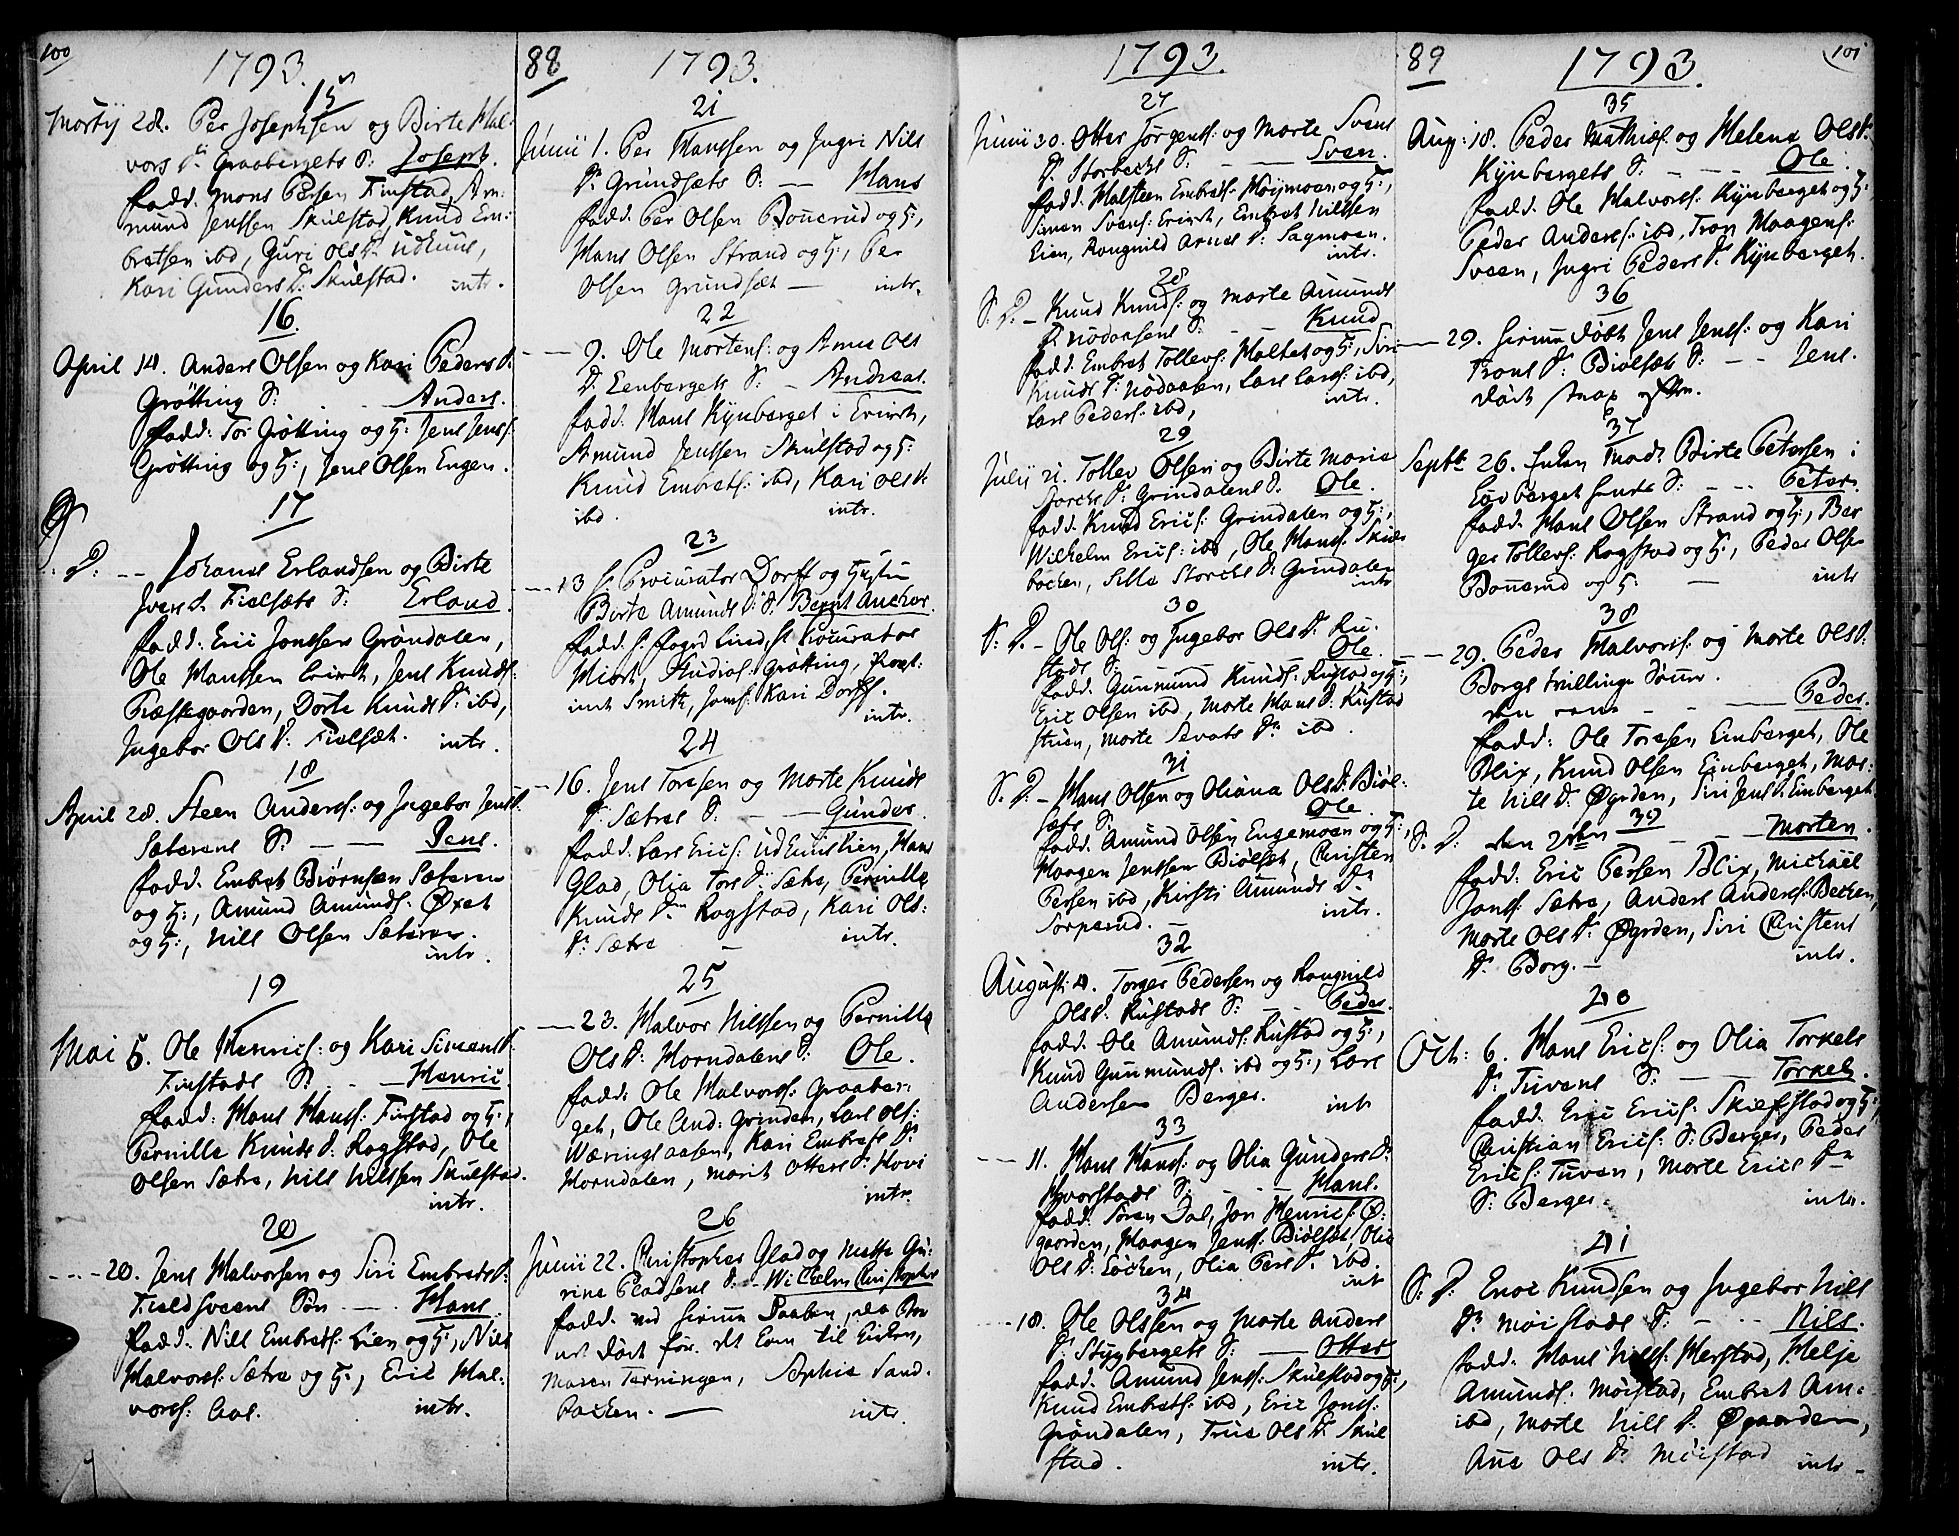 100
1793.
15
Martij 28. Per Josephsen og Birte Hal-
vors D: Graabergets S: Joseph.
fadd. Mons Persen Finstad, Am-
mund Jenssen Skulstad, Knud Em-
bretsen ibd, Guri Ols D:
Kari Gunders D: Skulstad. intr.
16
April 14. Anders Olsen og Kari Peders D:
Grøtting S: Anders.
fadd: Tor Grøtting og H: Jens Jenss:
Grøtting og H:, Jens Olsen Engen.
17
S. D: Johans Erlandsen og Birte
Ivers D. Fielsets S: Erland.
fadd: Eric Jonssen Grøndalen,
Ole Hanssen Jens Knuds:
Præstegaarden, Dorte Knuds D: ibd,
Ingebor Ols D: Fielset. intr.
18
April 28. Steen Anders: og Ingebor Jens D.
Sæterens S: Jens.
fadd. Embret Biørnsen Sæteren
og H:, Amund Amunds: Øxet
og H:, Nils Olsen Sæteren.
intr.
19
Mai 5. Ole Henrics: og Kari Simens D:
Finstads S: Henric.
fadd: Hans Hans: Finstad og H:,
Pernille Knuds D: Rogstad, Ole
Olsen Sætre, Nils Nilssen Skulstad.
intr.
20
20. Jens Halvorsen og Siri Embrets D:
Fieldsveens Søn Hans.
fadd: Nils Embrets: Lien og H:, Nils
Halvors: Sætre og H:, Eric Hal-
vors: Aas. intr.
88
1793.
21
Junii 1. Per Hanssen og Ingri Nils
D: Grundsets S: Hans
fadd. Per Olsen Bonerud og H:,
Hans Olsen Strand og H:, Per
Olsen Grundset intr.
22
9. Ole Mortens: og Anne Ols
D: Eenbergets S: Andreas.
fadd. Hans Kynberget i
Amund Jenssen Skulstad og H:
Knud Embrets: ibd, Kari Ols D:
ibd. intr.
23
13 H Procurator Dorff og Hustru
Birte Amunds D: S: Bernt Ancher.
fadd. H: Lind, H: Procurator
Grøtting,
Smith, Jomf: Kari Dorff.
intr.
24
16. Jens Toresen og Marte Knuds
D: Sætres S: Gunder.
fadd. Lars Erics: Hans
Glad, Olia Tors D: Sætre, Pernille
Knuds D: Rogstad, Kari Ols:
D: Sætre intr.
25
23. Halvor Nilssen og Pernille
Ols D: Horndalens S: Ole.
fadd: Ole Halvors: Graaber-
get, Ole And: Grinder, Lars Ols:
Væringsaasen, Kari Embrets D:
Horndalen, Marit Otters D: Hovi
intr.
26
Junii 22. Christopher Glad og Mette Gu-
rine Pladsens S: Wilhelm Christopher
fadd. ved hiemme Daaben, da Barn
 død før det kom til Kirken,
Maren Terningen, Sophie Sand-
backen. intr.
1793.
27
Junii 30. Otter Jørgens: og Marte Svens
D: Storbechs S: Sven.
fadd. Halsteen Embrets: Møijmoen og H:,
Simen Svens: Embret Nilssen
Eien, Rongnild Arnes D: Sagmoen.
intr.
28
S. D. Knud Knuds: og Marte Amunds
D: Nødaasens S: Knud
fadd. Embret Tollevs: Maltet og H:, Siri
Knuds D: Nødaasen, Lars Lars: ibd,
Lars Peders: ibd, intr.
29
Julii 21. Tollev Olsen og Birte Marie
Storchs D: Grindalens S. Ole.
fadd. Knud Erics: Grindalen og H:,
Wilhelm Erics: ibd, Ole Hans: Skul-
backen, Sille Storchs D: Grindalen
intr
30
S: D. Ole Ols: og Ingebor Ols D: Ru-
stads S: Ole.
fadd. Gunmund Knuds: Rustad og H:,
Eric Olsen ibd, Marte Hans D: Rustad
stuen, Marte Sevats D: ibd.
31
S. D. Hans Olsen og Oliana Ols D: Biøl-
sets S. Ole
fadd. Amund Olsen Engemoen og H:,
Haagen Jenssen Biølset, Christen
Persen ibd, Kirsti Amunds D:
Sorperud. intr.
32
Augusti 4. Torger Pedersen og Rongnild
Ols D. Rustads S: Peder.
fadd. Ole Amunds: Rustad og H:,
Knud Gunmunds: ibd og H:, Lars
Andersen Berger. intr
33
11. Hans Hans: og Olia Gunders D:
Hvorstads S: Hans.
fadd: Søren Dal, Jon Henrics: Ø-
gaarden, Haagen Jens: Biølset, Olia
Ols D: Løcken, Olia Pers D: ibd.
intr
34
18. Ole Olssen og Marte Anders
D: Stygbergets S: Otter
fadd. Amund Jens: Skulstad og H:,
Knud Embrets: ibd, Eric Jons:
Grøndalen, True Ols D: Skul
stad. intr.
89
1793.
101
35
Aug: 18. Peder Mathis: og Helene Ols D:
Kynbergets S: Ole.
fadd. Ole Halvors: Kynberget og H:
Peder Anders: ibd, Tron Haagens:
Sveen, Ingri Peders D: Kynberget.
36
29. hiemme døbt Jens Jens: og Kari
Trons D: Biølset S: Jens.
død strax efter.
37
Septbr 26. Mad: Birte Petersen i
Løvberget hendes S: Peter.
fadd. Hans Olsen Strand og H:, Ber
ger Tollevs: Rogstad og H:, Peder Olsen
Bonerud og H: intr
38
29. Peder Halvors: og Marte Ols D:
Borgs tvillinge Sønner.
den eene Peder.
fadd: Ole Toresen Eenberget, Ole
Blix, Knud Olsen Eenberget, Mar-
te Nils D: Øgrden, Siri Jens D: Eenberget
39
S. D: den 2den Morten.
fadd: Eric Persen Blix, Michael
Jons: Sætre, Anders Anders: Becken,
Marte Ols D: Øgrden, Siri Christens
D: Borg. intr.
40
Oct: 6. Hans Erics: og Olia Torkels
D: Tuvens S: Torkel.
fadd: Eric Erics: Skiefstad og H:,
Christian Erics: S: Berger, Peder
Erics: Tuven, Marte Erics D:
S: Berger. intr.
41
S: D: Enoc Knudsen og Ingebor Nils
D: Møistads S: Nils.
fadd. Hans Nils: Herstad, Helje
Amunds: Møistad, Embret Am:
ibd, Marte Nils D: Øgaarden,
Ane Ols D: Møistad intr